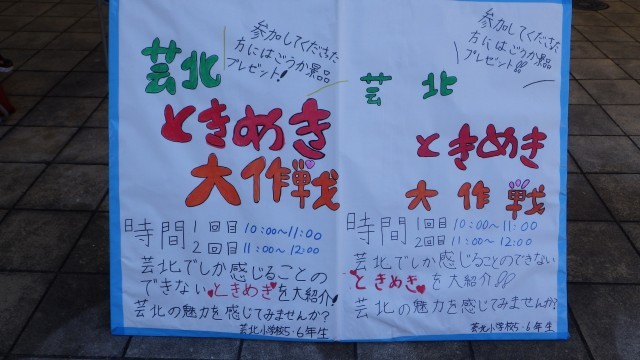 参加してくださた
方にはごうか景品
プレゼント!
芸北
ときめき
大作戦
時間 1回目 10:00~11:00
2回目 11:00~12:00
芸北でしか感じることの
できない♥ときめき♥を大紹介!
芸北の魅力を感じてみませんか?
芸北小学校5・6年生
参加してくださた
方にはごうか景品
プレゼント!!
芸北
ときめき
大作戦
時間 1回目 10:00~11:00
2回目 11:00~12:00
芸北でしか感じることのできない
ときめきを大紹介!!
芸北の魅力を感じてみませんか?
芸北小学校5・6年生